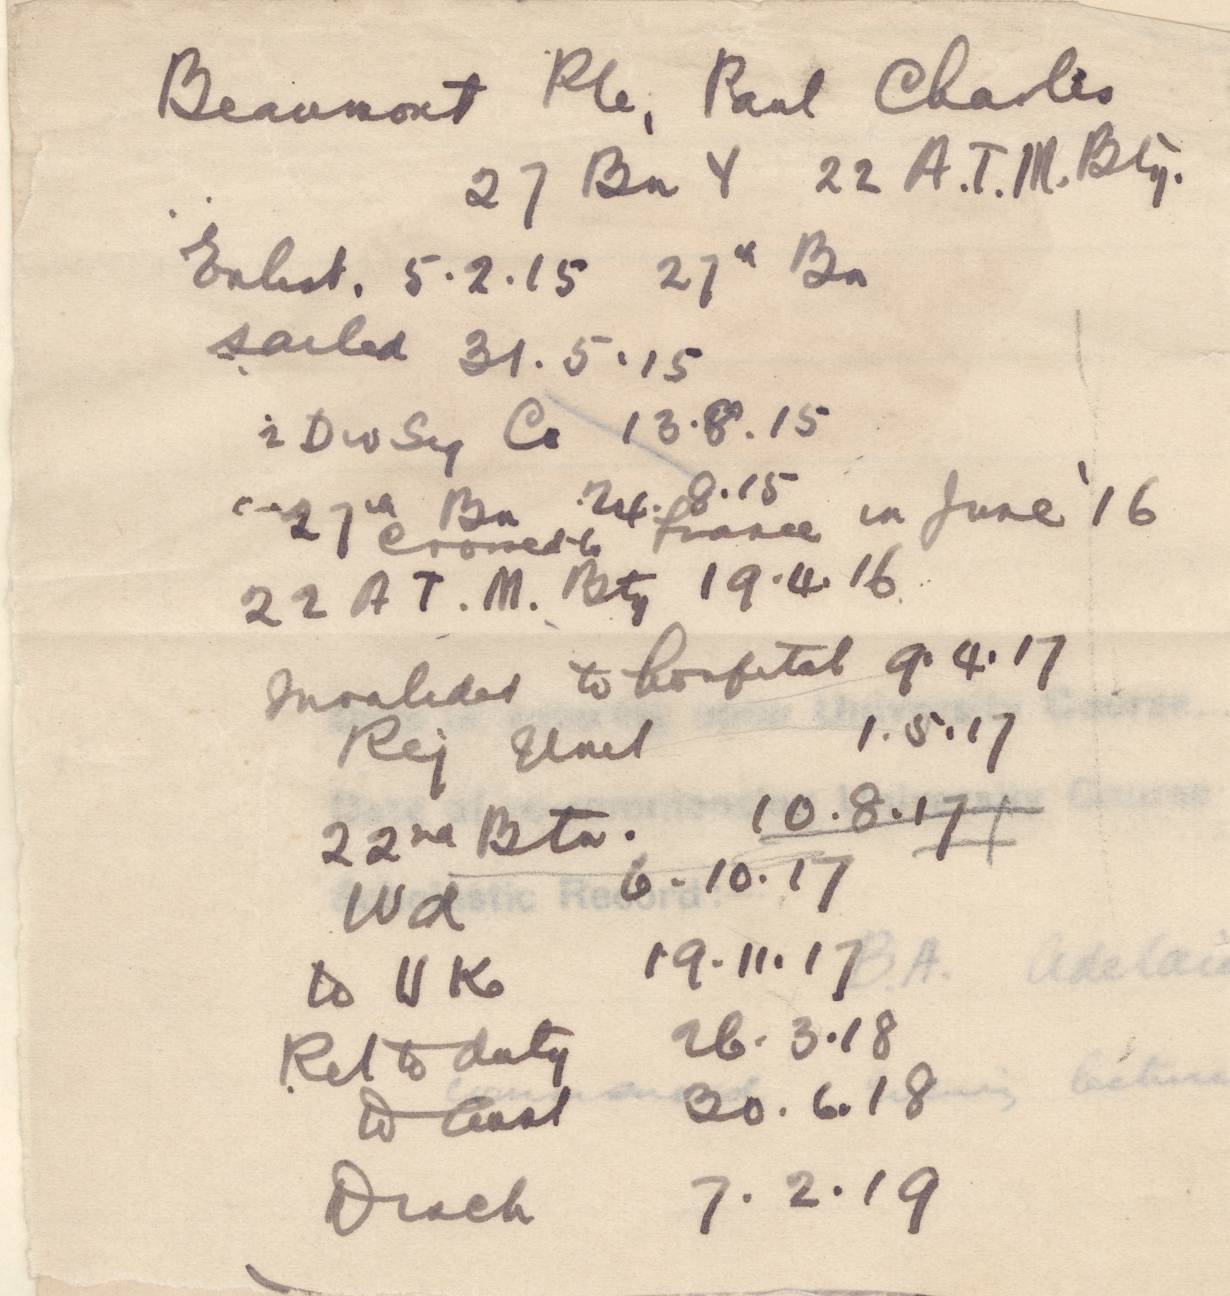 Beaumont Pte, Paul Charles
27 Bn & 22 A.T.M. Bty.
Enlist. 5.2.15 27th Bn
sailed 31.5.15
2 Div Sig Co 13.8.15
27th Bn 24.8.15
Crossed to France in June '16
22 A T. M. Bty 19.4.16
Invalided to hospital 9.4.17
Rej Unit 1.5.17
22nd Btn. 10.8.17
Wd 6.10.17
to U K 19.11.17
Ret to duty 26.3.18
to Aust 30.6.18
Disch 7.2.19
University Course
University Course
Scholastic Record:
B.A. Adelaid